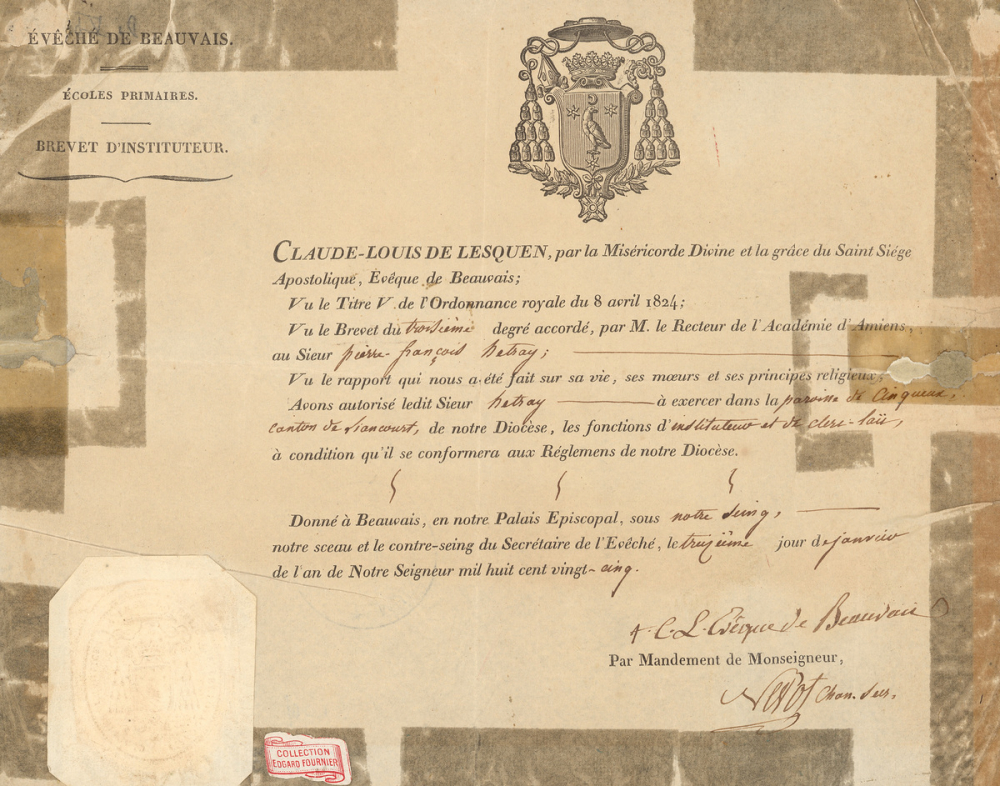 ÉVÊCHÉ DE BEAUVAIS.
ÉCOLES PRIMAIRES.
BREVET D'INSTITUTEUR.
CLAUDE-LOUIS DE LESQUEN, par la Miséricorde Divine et la grâce du Saint Siége
Apostolique, Evêque de Beauvais;
Vu le Titre V de l'Ordonnance royale du 8 avril 1824;
Vu le Brevet du troisième degré accordé, par M. le Recteur de l'Académie d'Amiens,
au Sieur pierre-françois hetray;
Vu le rapport qui nous a été fait sur sa vie, ses mœurs et ses principes religieux;
Avons autorisé ledit Sieur hetray à exercer dans la paroisse de Cinqueux,
canton de Liancourt, de notre Diocèse, les fonctions d'instituteur et de clerc-laïc,
à condition qu'il se conformera aux Réglemens de notre Diocèse.
Donné à Beauvais, en notre Palais Episcopal, sous notre seing,
notre sceau et le contre-seing du Secrétaire de l'Evêché, le treizième jour de janvier
de l'an de Notre Seigneur mil huit cent vingt-cinq.
C. L. Evêque de Beauvais
Par Mandement de Monseigneur,
chan. secr.
COLLECTION
EDGARD FOURNIER